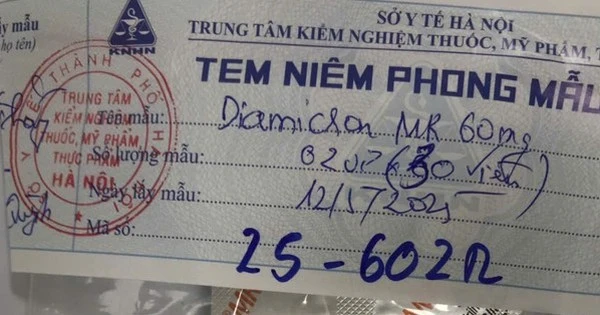 SỞ Y TẾ HÀ NỘI
TRUNG TÂM KIỂM NGHIỆM THUỐC, MỸ PHẨM, T
KNHN
lấy mẫu
họ tên)
TEM NIÊM PHONG MẪU
Y TẾ THÀNH PHỐ HÀ NỘI
TRUNG TÂM
KIỂM NGHIỆM
THUỐC, MỸ PHẨM
THỰC PHẨM
HÀ NỘI
Tên mẫu: Diamicron MR 60mg
Số lượng mẫu: 02 (30 viên)
Ngày lấy mẫu: 12/5/2025
Mã số: 25-602